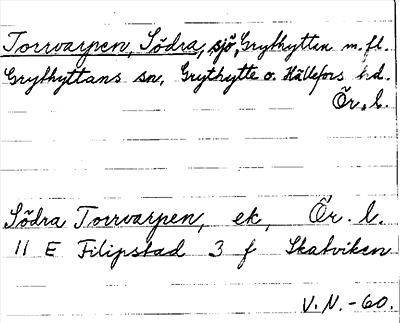 Torrvarpen, Södra, sjö, Grythyttan m.fl.
Grythyttans sn, Grythytte o. Hällefors hd.
Ör. l.
Södra Torrvarpen, ek, Ör. l.
11 E Filipstad 3 f Skatviken
V.N.-60.